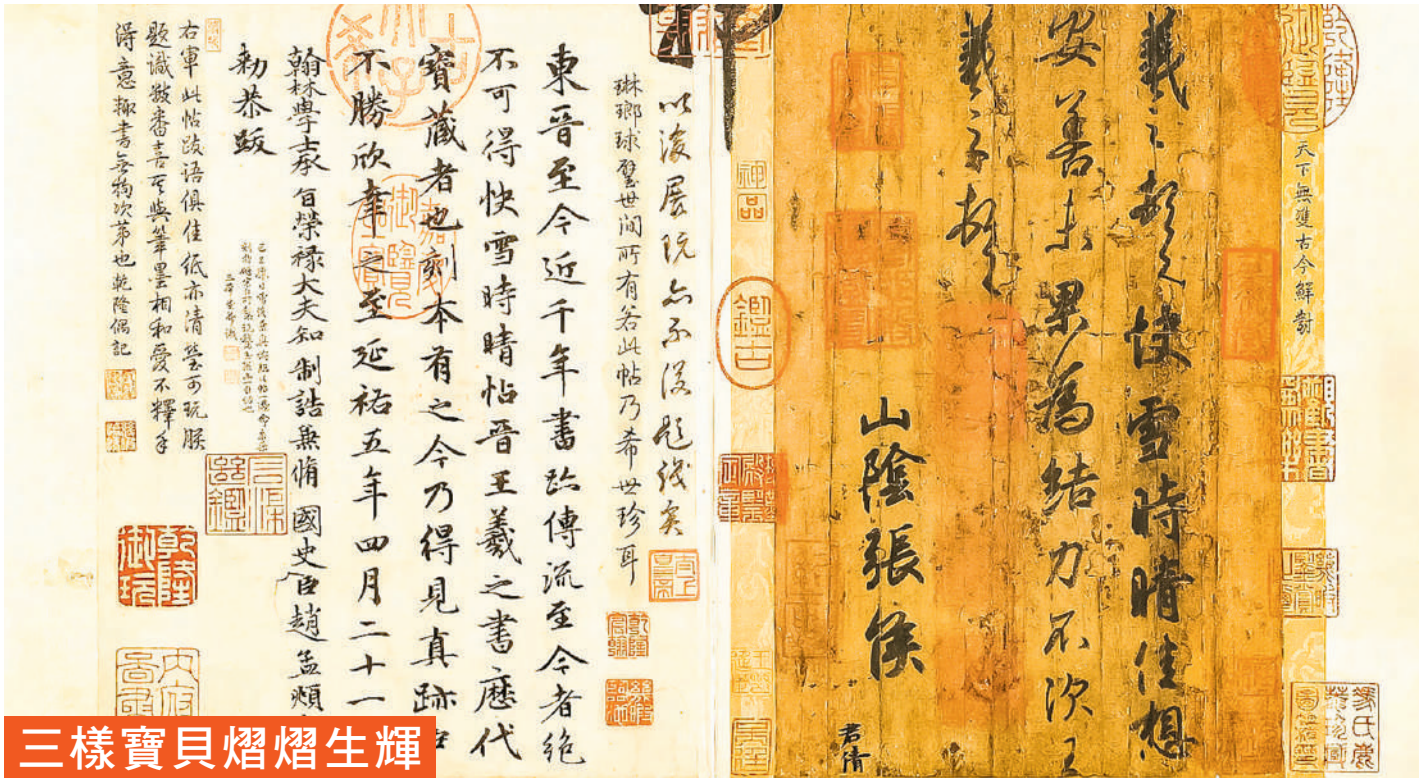 乾隆御覽之寶
天下無雙古今鮮對
羲之頓首快雪時晴佳想
安善未果為結力不次王
羲之頓首
山陰張侯
君倩
神品
鑑古
以後展玩亦不復題識矣
琳瑯球璧世間所有若此帖乃希世珍耳
東晉至今近千年書跡傳流至今者絕
不可得快雪時晴帖晉王羲之書歷代
寶藏者也刻本有之今乃得見真跡臣
不勝欣幸之至延祐五年四月二十一
翰林學士承旨榮祿大夫知制誥兼脩 國史臣趙孟頫
勑恭跋
嘉慶御覽之寶
右軍此帖跋語俱佳紙亦清瑩可玩朕
題識數番喜其與筆墨相和愛不釋手
得意輒書無拘次第也乾隆偶記
乾隆御玩
三樣寶貝熠熠生輝